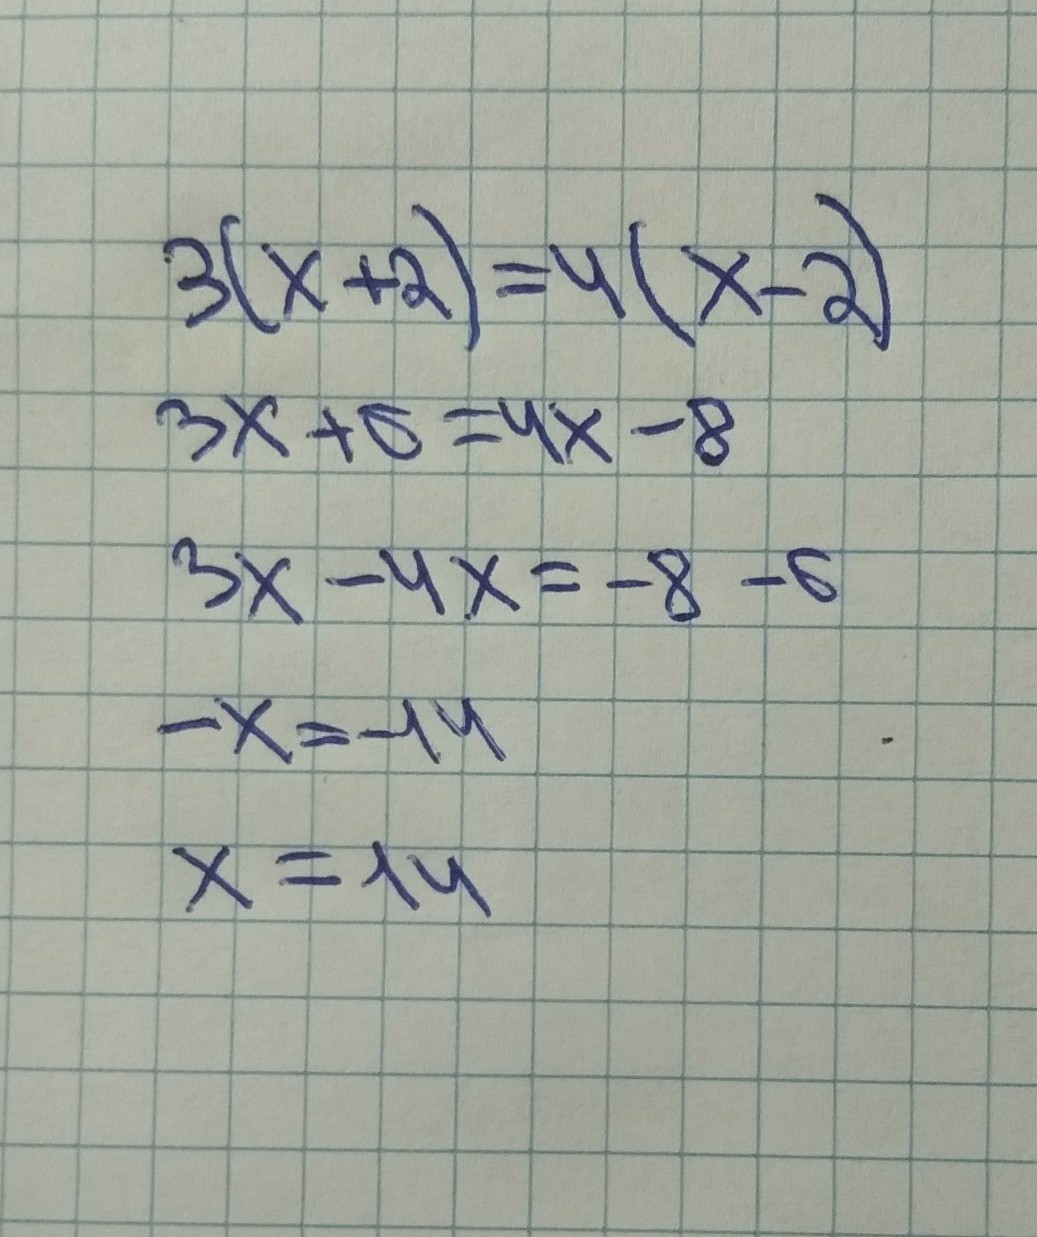 3(x+2)=4(x-2)
3x+6=4x-8
3x-4x=-8-6
-x=-14
x=14